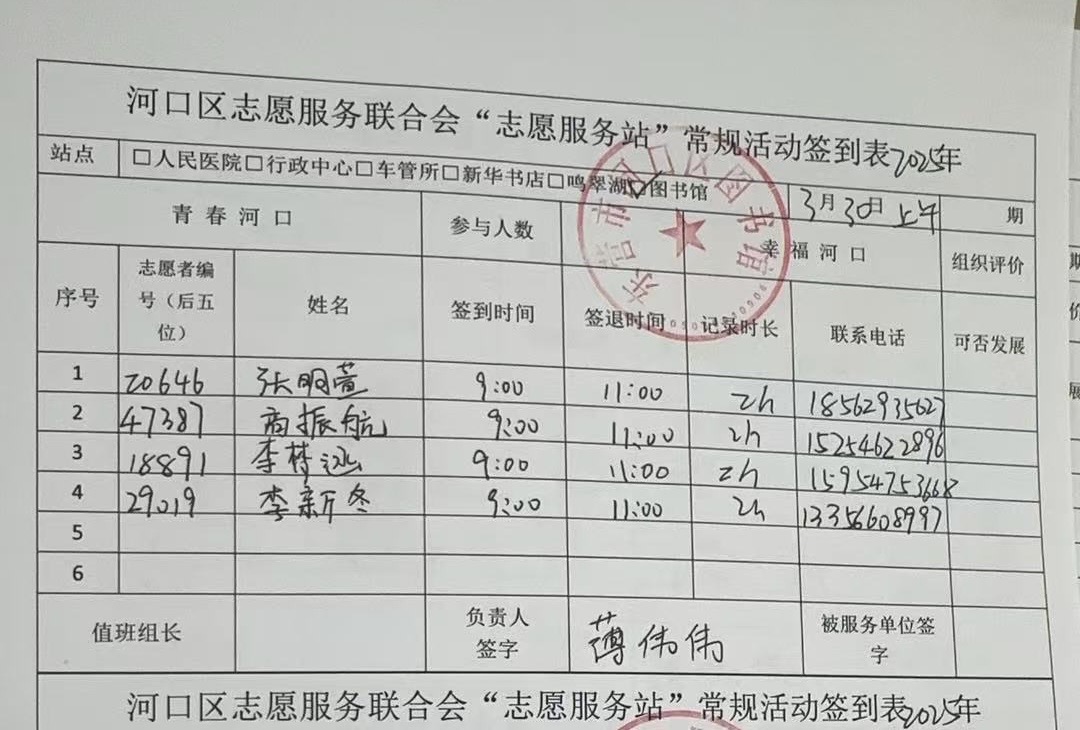 河口区志愿服务联合会“志愿服务站”常规活动签到表2025年
站点 □人民医院□行政中心□车管所□新华书店□鸣翠湖☑图书馆 3月30日上午 期
青春河口 参与人数 幸福河口 组织评价
序号 志愿者编号（后五位） 姓名 签到时间 签退时间 记录时长 联系电话 可否发展
1 20646 张明萱 9:00 11:00 2h 18562935627
2 47387 商振航 9:00 11:00 2h 15254622896
3 18891 李梦涵 9:00 11:00 2h 15954753668
4 29019 李新冬 9:00 11:00 2h 13356608997
5
6
值班组长 负责人签字 薄伟伟 被服务单位签字
河口区志愿服务联合会“志愿服务站”常规活动签到表2025年
东营市河口区图书馆